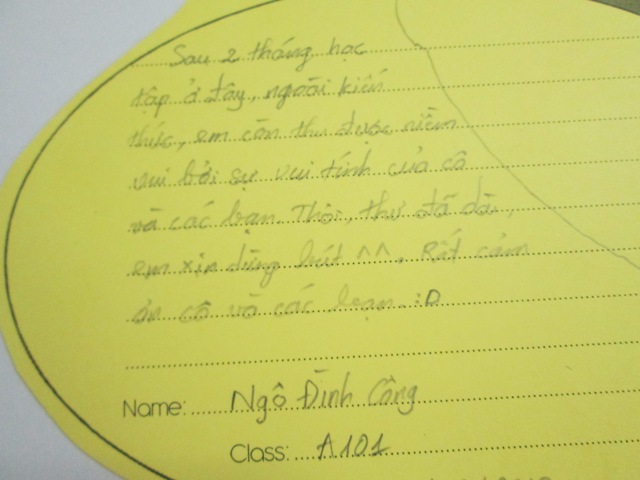 Sau 2 tháng học
tập ở đây, ngoài kiến
thức, em còn thu được niềm
vui bởi sự vui tính của cô
và các bạn. Thôi, thư đã dài,
em xin dừng bút ^^. Rất cảm
ơn cô và các bạn. :D
Name: Ngô Đình Công
Class: A101